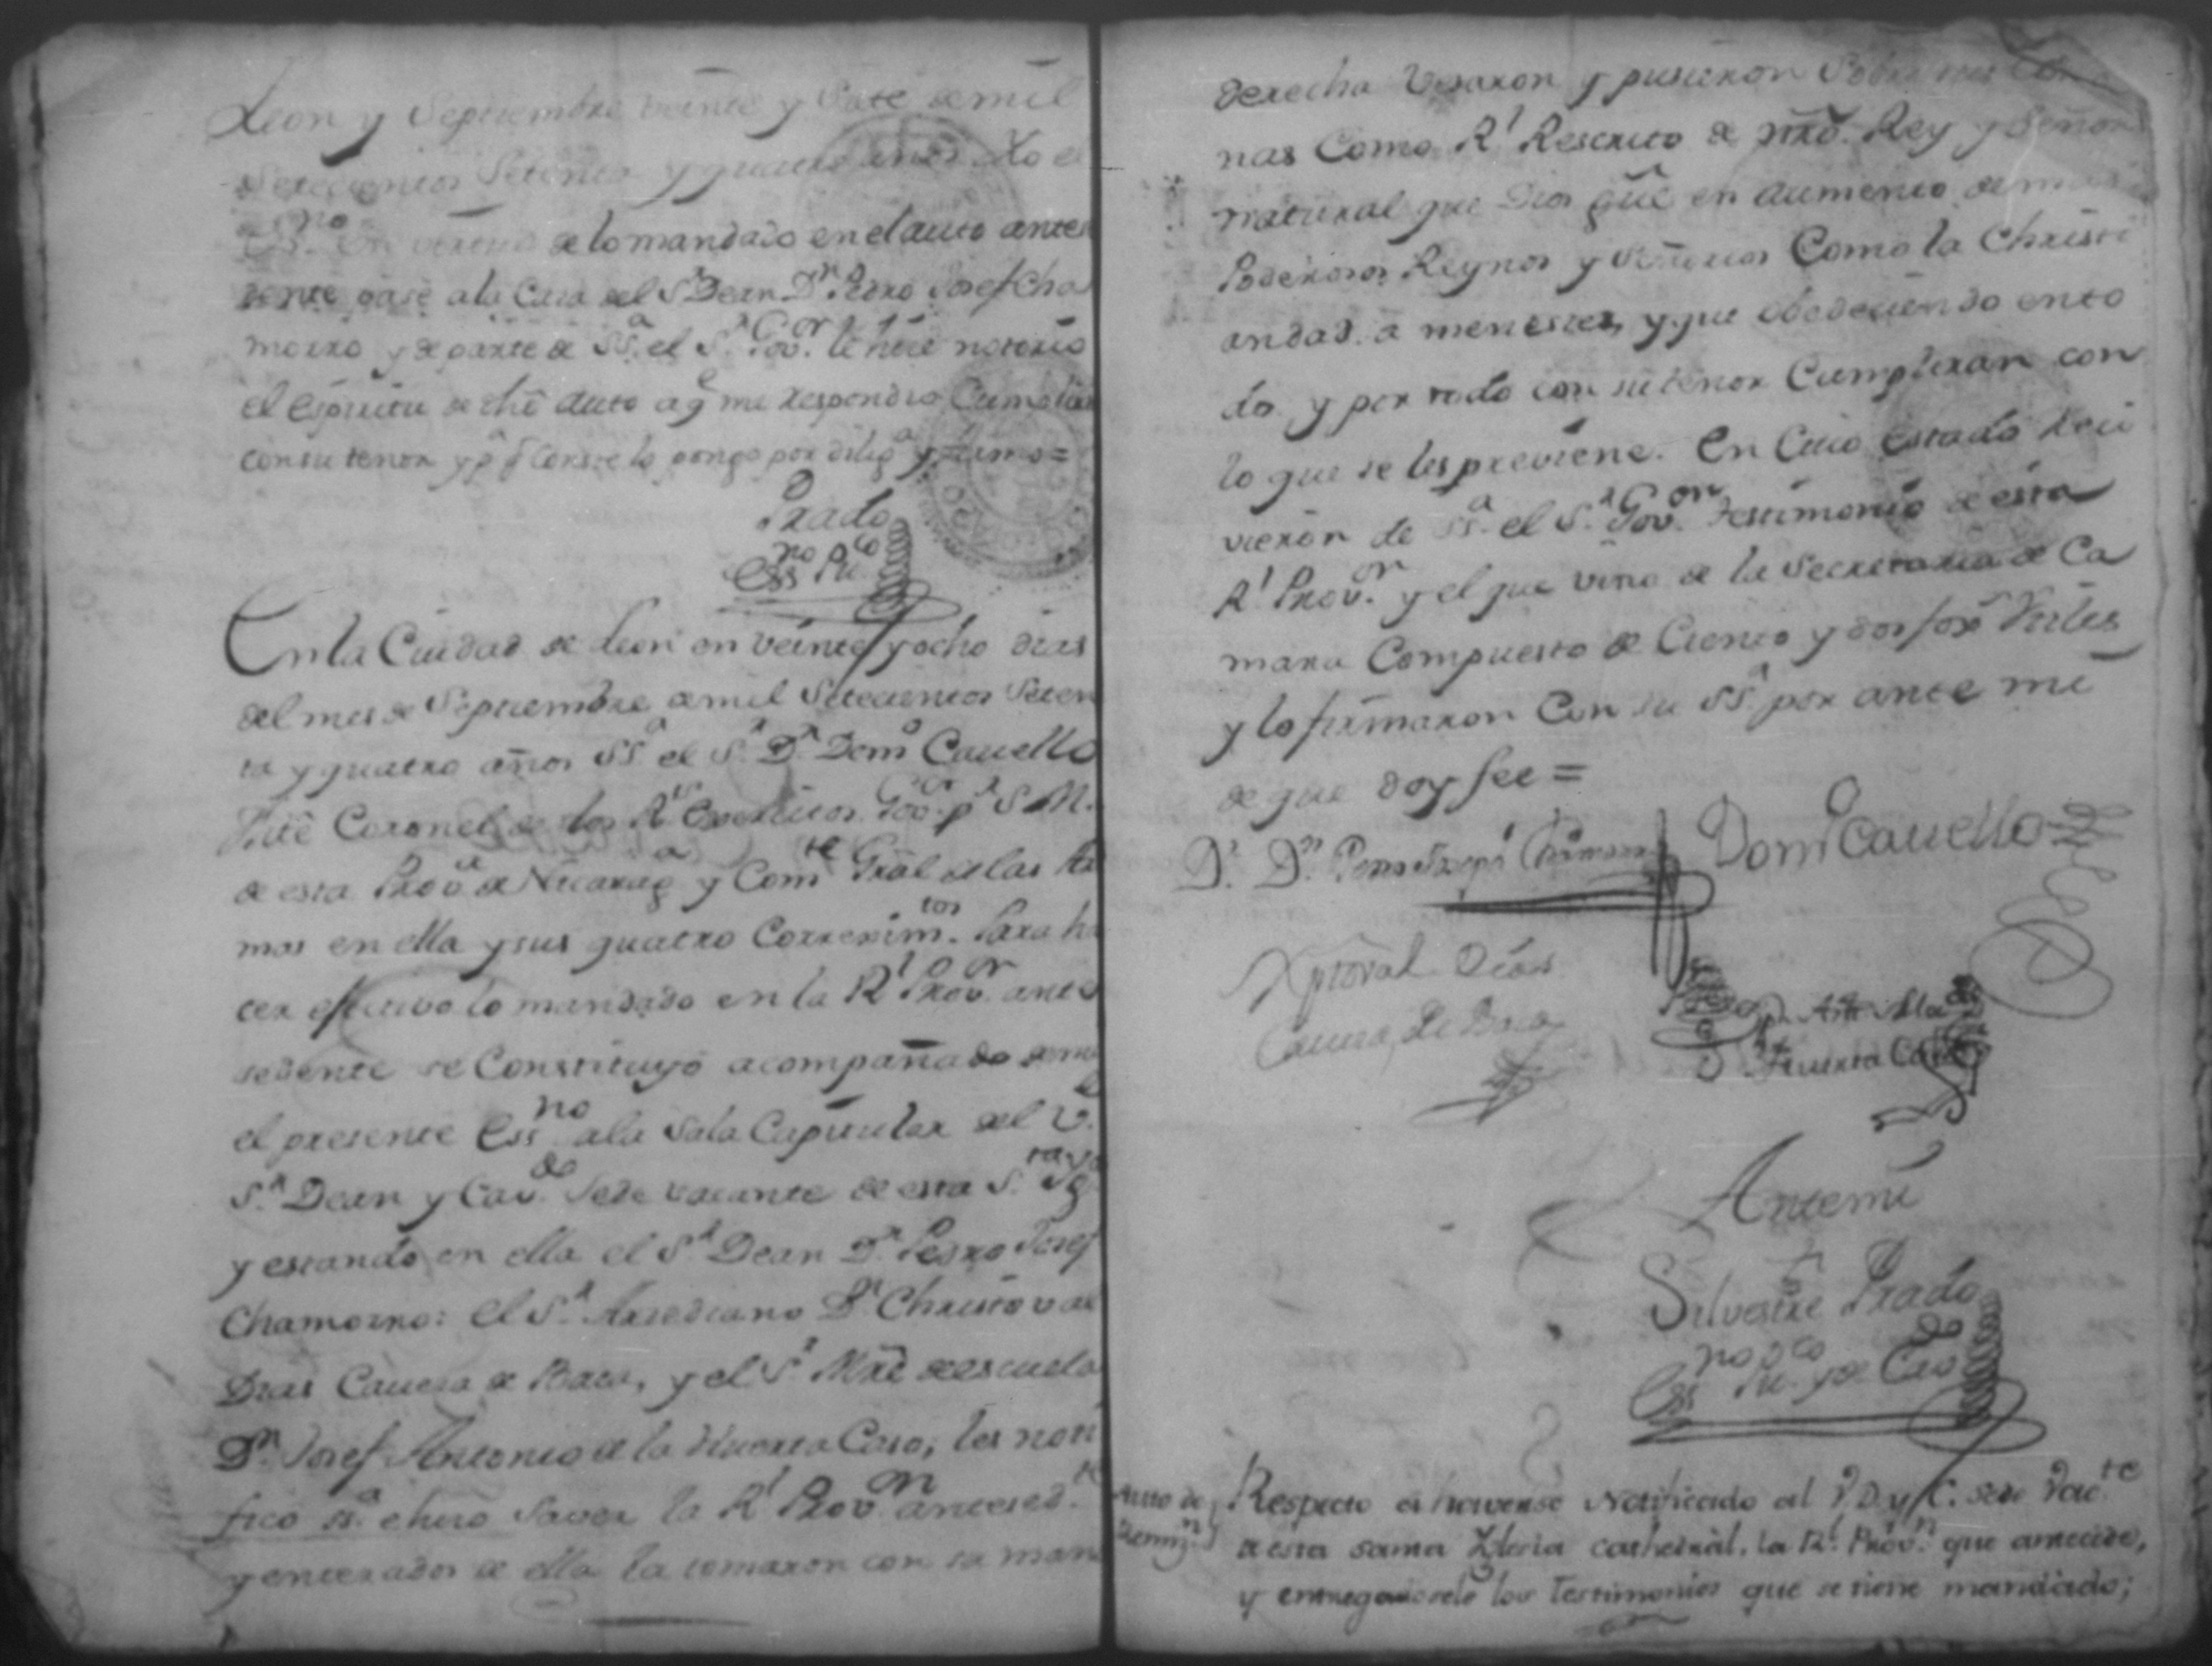 Leon y Septiembre veinte y Siete de mil
Setecientos Setenta y quatro años Yo el
Essno. en virtud de lo mandado en el auto antece
dente pasé a la Casa del Sr. Dean Dn. Pedro Josef Cha
morro y de parte de SSa. el Sr. Govor. le hize notorio
el espiritu de dho auto a q me respondio Cumpliria
con su tenor y pa. q Conste lo pongo por diliga. y firmo=
Prado
Essno Puco
En la Ciudad de Leon en veinte y ocho dias
del mes de Septiembre de mil Setecientos Seten
ta y quatro años SSa. el Sr. Dn. Domo Cavello
Thte Coronel de los Rs. Exercitos Govor. pr. S.M.
de esta Prova. de Nicaraga. y Comte Gral de las Ar
mas en ella y sus quatro Correximtos. Para ha
cer efectivo lo mandado en la Rl Provon. ante
sedente se Constituyó acompañado de mi
el presente Essno. a la Sala Capitular del V.
Sr. Dean y Cavdo. Sede vacante de esta Sta. Yga
y estando en ella el Sr. Dean Dn. Pedro Josef
Chamorro: el Sr. Arcediano Dn. Christoval
Dias Caveza de Baca, y el Sr. Mre de escuela
Dn. Josef Antonio de la Huerta Caso, les noti
ficó SSa. e hizo Saver la Rl Provon. antesedte.
y enterados de ella la tomaron con su mano
derecha Vesaron y pusieron Sobre sus Coro
nas Como Rl Rescrito de nro. Rey y Señor
natural que Dios gue en aumento de mas
Poderosos Reynos y Señorios Como la Christi
andad a menester, y que obedeciendo en to
do y por todo con su tenor Cumpliran con
lo que se les previene. En Cuio estado reci
vieron de SSa. el Sr. Govor. testimonio de esta
Rl Provon. y el que vino de la Secretaria de Ca
mara Compuesto de Ciento y dos fox utiles
y lo firmaron Con su SSa. por ante mi
de que doy fee =
Dr. Dn. Pedro Joseph Chamorro Domo Cavello
Xptoval Días
Caveza de Baca
Huerta Caso
Ante mi
Silvestre Prado
Essno Puco. y de Cavdo
Auto de Respecto a haverse Notificado al V.D. y C. Sede Vacte
Remisn. de esta santa Yglesia cathedral, la Rl. Provn. que antecede,
y entregadosele los Testimonios que se tiene mandado;